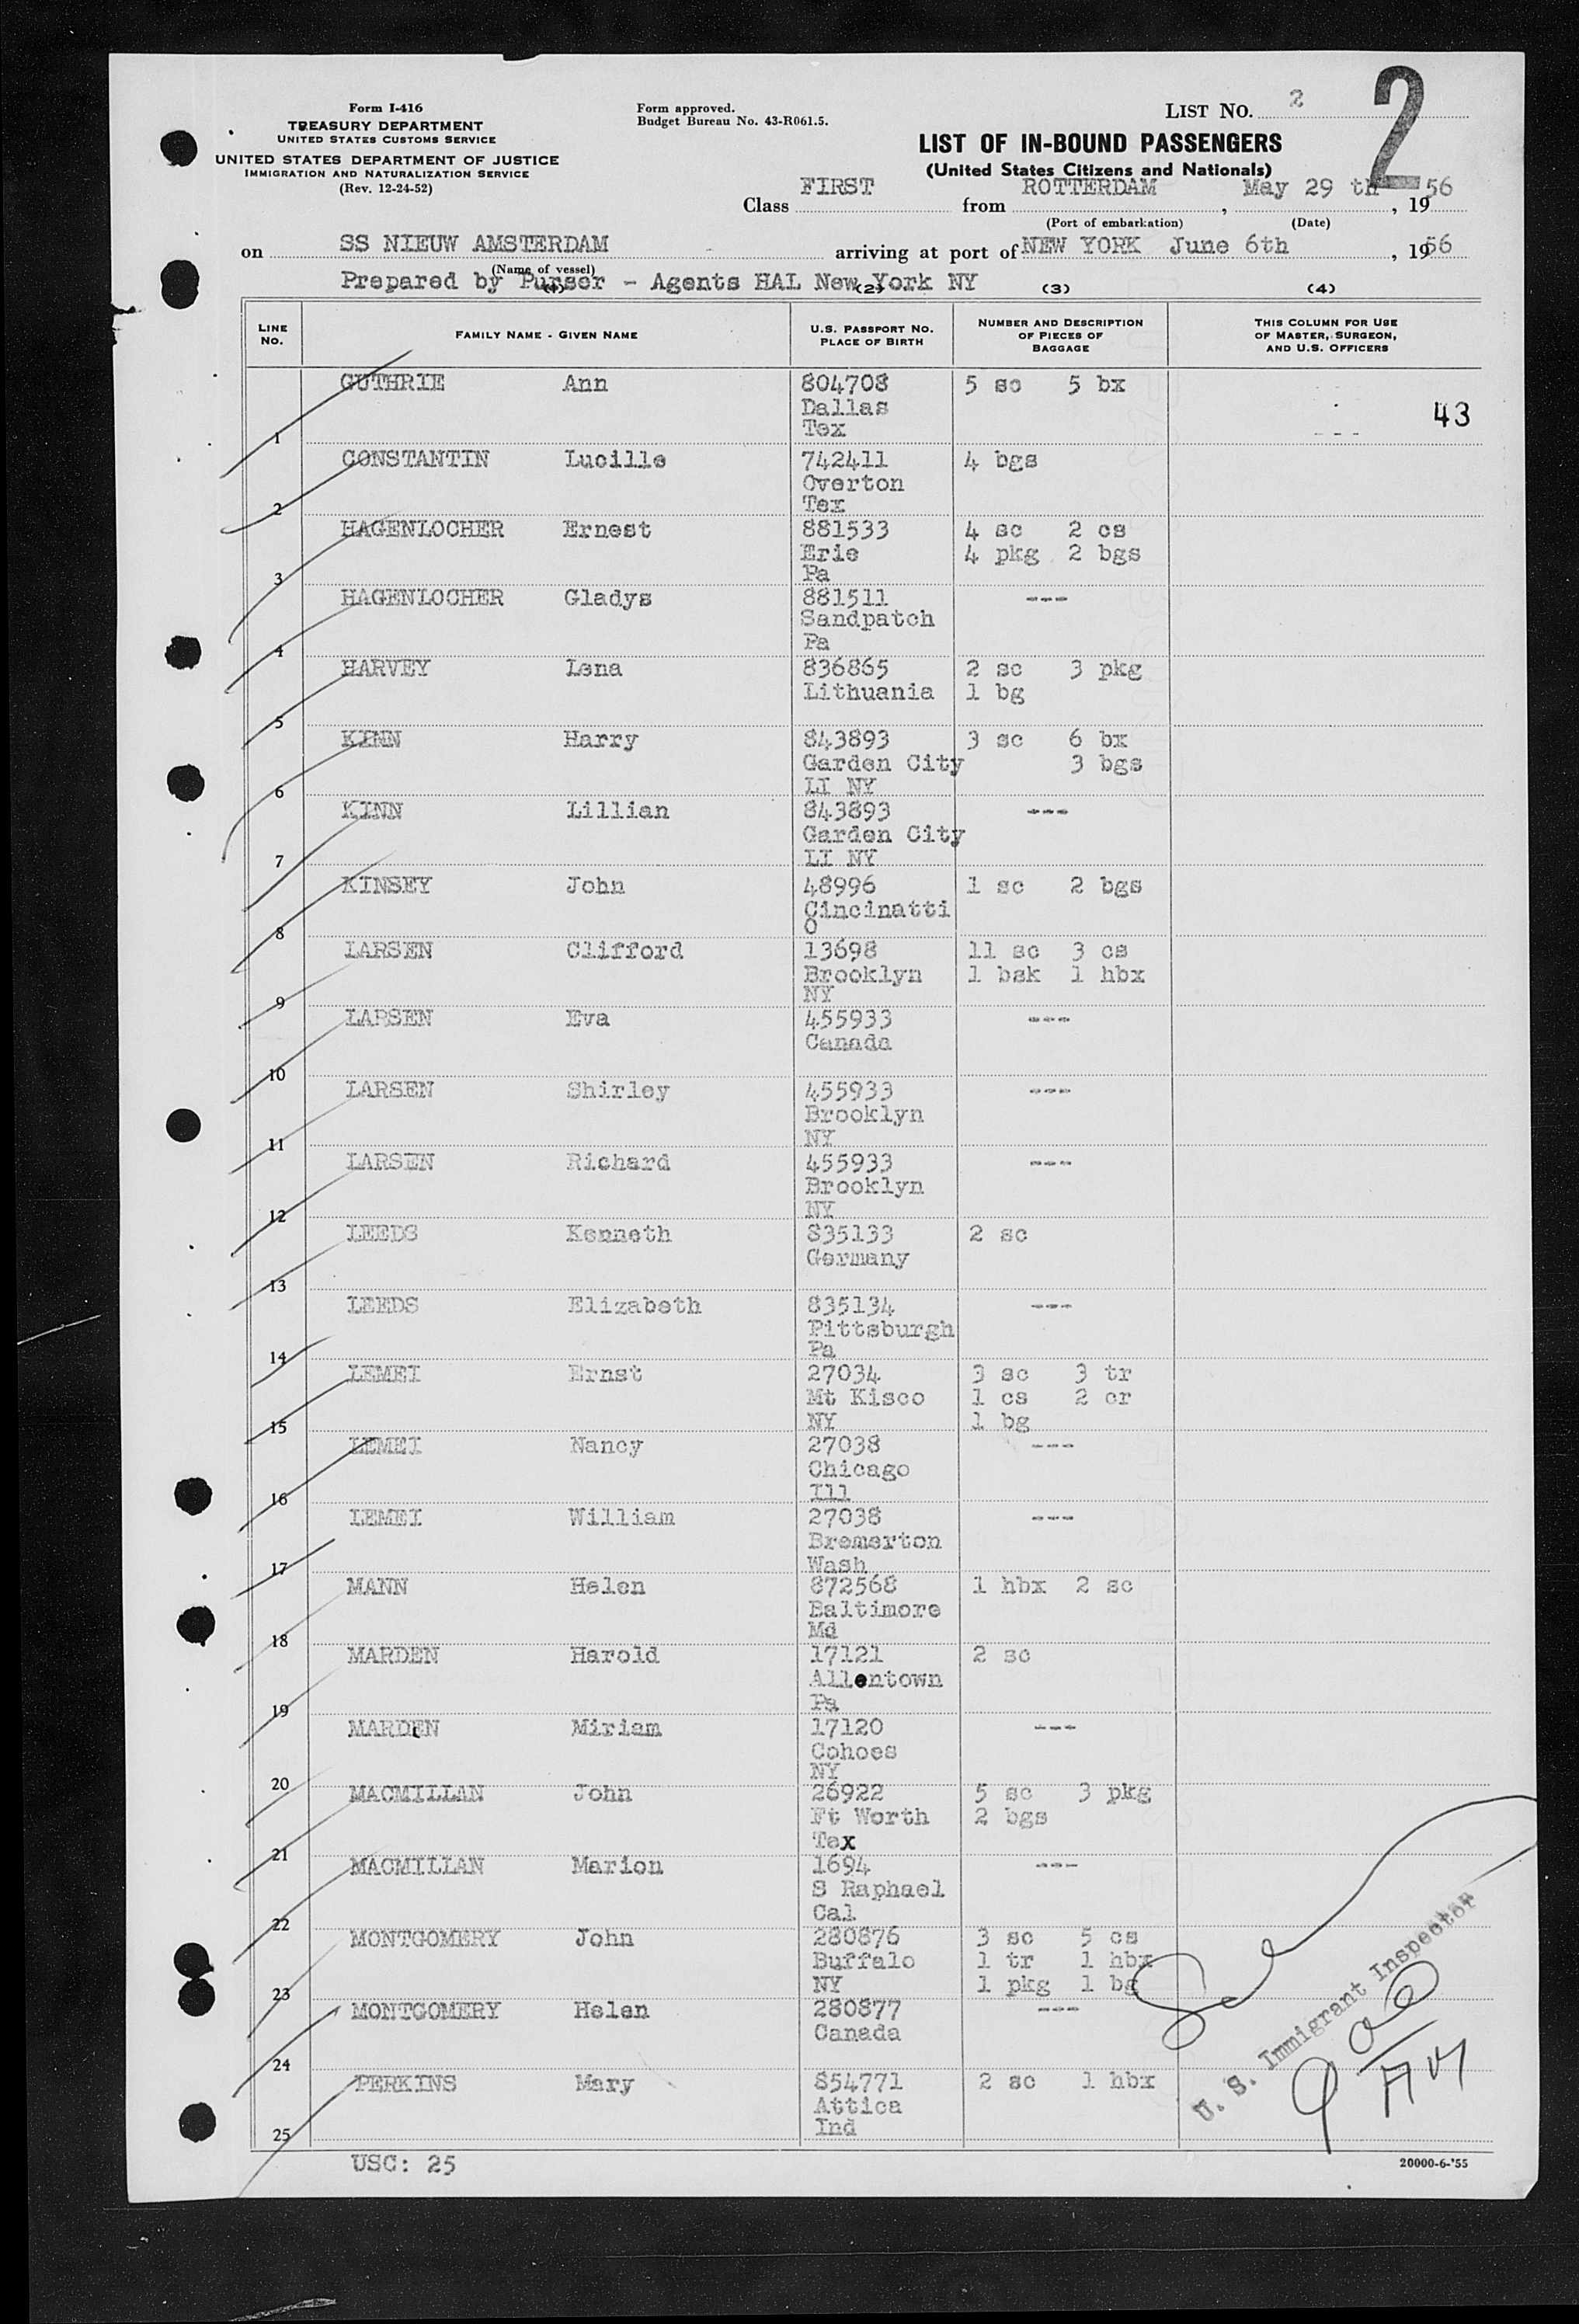 Form I-416
TREASURY DEPARTMENT
UNITED STATES CUSTOMS SERVICE
UNITED STATES DEPARTMENT OF JUSTICE
IMMIGRATION AND NATURALIZATION SERVICE
(Rev. 12-24-52)
Form approved.
Budget Bureau No. 43-R061.5.
LIST NO. 2
2
LIST OF IN-BOUND PASSENGERS
(United States Citizens and Nationals)
Class FIRST from ROTTERDAM, May 29 th, 1956
(Port of embarkation) (Date)
on SS NIEUW AMSTERDAM arriving at port of NEW YORK June 6th, 1956
(Name of vessel)
Prepared by Purser - Agents HAL New York NY
(1) (2) (3) (4)
LINE NO. FAMILY NAME - GIVEN NAME U.S. PASSPORT NO. PLACE OF BIRTH NUMBER AND DESCRIPTION OF PIECES OF BAGGAGE THIS COLUMN FOR USE OF MASTER, SURGEON, AND U.S. OFFICERS
GUTHRIE Ann 804708 5 sc 5 bx
Dallas 43
Tex
1
CONSTANTIN Lucille 742411 4 bgs
Overton
Tex
2
HAGENLOCHER Ernest 881533 4 sc 2 cs
Erie 4 pkg 2 bgs
Pa
3
HAGENLOCHER Gladys 881511 ---
Sandpatch
Pa
4
HARVEY Lena 836865 2 sc 3 pkg
Lithuania 1 bg
5
KINN Harry 843893 3 sc 6 bx
Garden City 3 bgs
LI NY
6
KINN Lillian 843893 ---
Garden City
LI NY
7
KINSEY John 48996 1 sc 2 bgs
Cincinatti
O
8
LARSEN Clifford 13698 11 sc 3 cs
Brooklyn 1 bsk 1 hbx
NY
9
LARSEN Eva 455933 ---
Canada
10
LARSEN Shirley 455933 ---
Brooklyn
NY
11
LARSEN Richard 455933 ---
Brooklyn
NY
12
LEEDS Kenneth 835133 2 sc
Germany
13
LEEDS Elizabeth 835134 ---
Pittsburgh
Pa
14
LEMEI Ernst 27034 3 sc 3 tr
Mt Kisco 1 cs 2 cr
NY 1 bg
15
LEMEI Nancy 27038 ---
Chicago
Ill
16
LEMEI William 27038 ---
Bremerton
Wash
17
MANN Helen 872568 1 hbx 2 sc
Baltimore
Md
18
MARDEN Harold 17121 2 sc
Allentown
Pa
19
MARDEN Miriam 17120 ---
Cohoes
NY
20
MACMILLAN John 26922 5 sc 3 pkg
Ft Worth 2 bgs
Tex
21
MACMILLAN Marion 1694 ---
S Raphael
Cal
22
MONTGOMERY John 280876 3 sc 5 cs
Buffalo 1 tr 1 hbx
NY 1 pkg 1 bg
23
MONTGOMERY Helen 280877 ---
Canada
24
PERKINS Mary 854771 2 sc 1 hbx
Attica
Ind
25
U. S. Immigrant Inspector
USC: 25
20000-6-'55